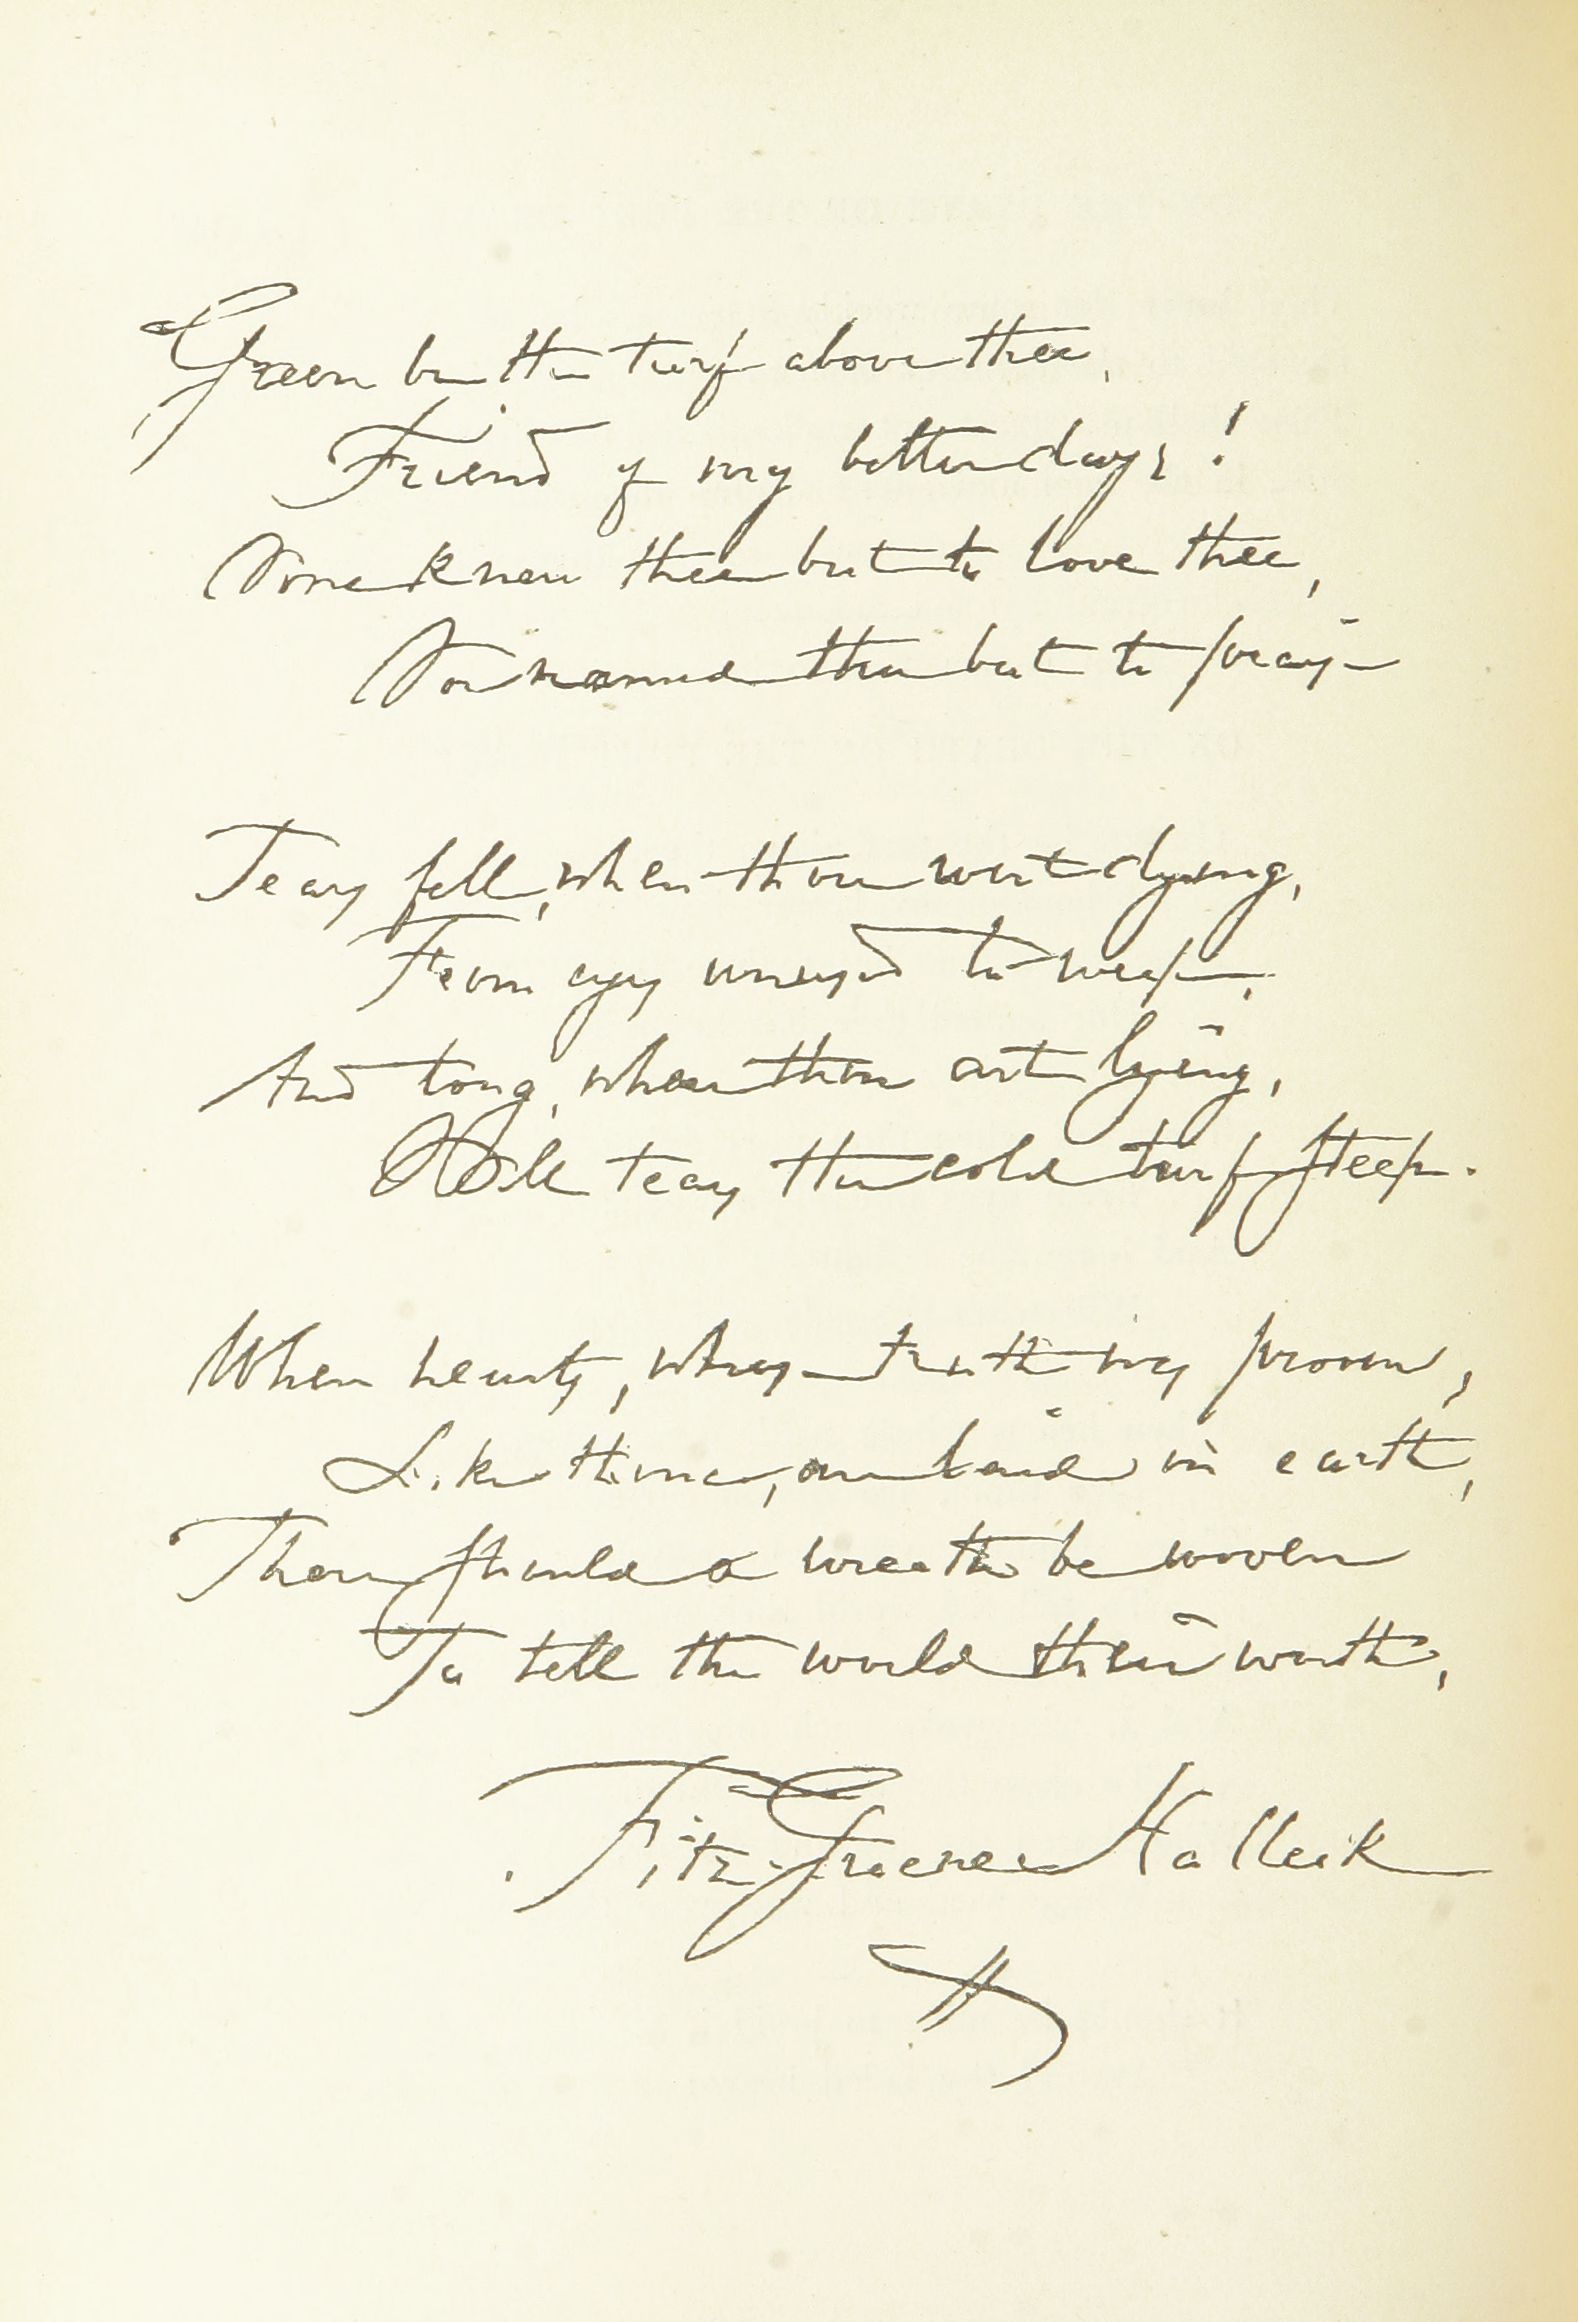 Green be the turf above thee,
Friend of my better days!
None knew thee but to love thee,
Nor named thee but to praise
Tears fell, when thou wert dying,
From eyes unused to weep,
And long, where thou art lying,
Will tears the cold turf steep.
When hearts, whose truth was proven,
Like thine, are laid in earth,
There should a wreath be woven
To tell the world their worth,
Fitz-Greene Halleck